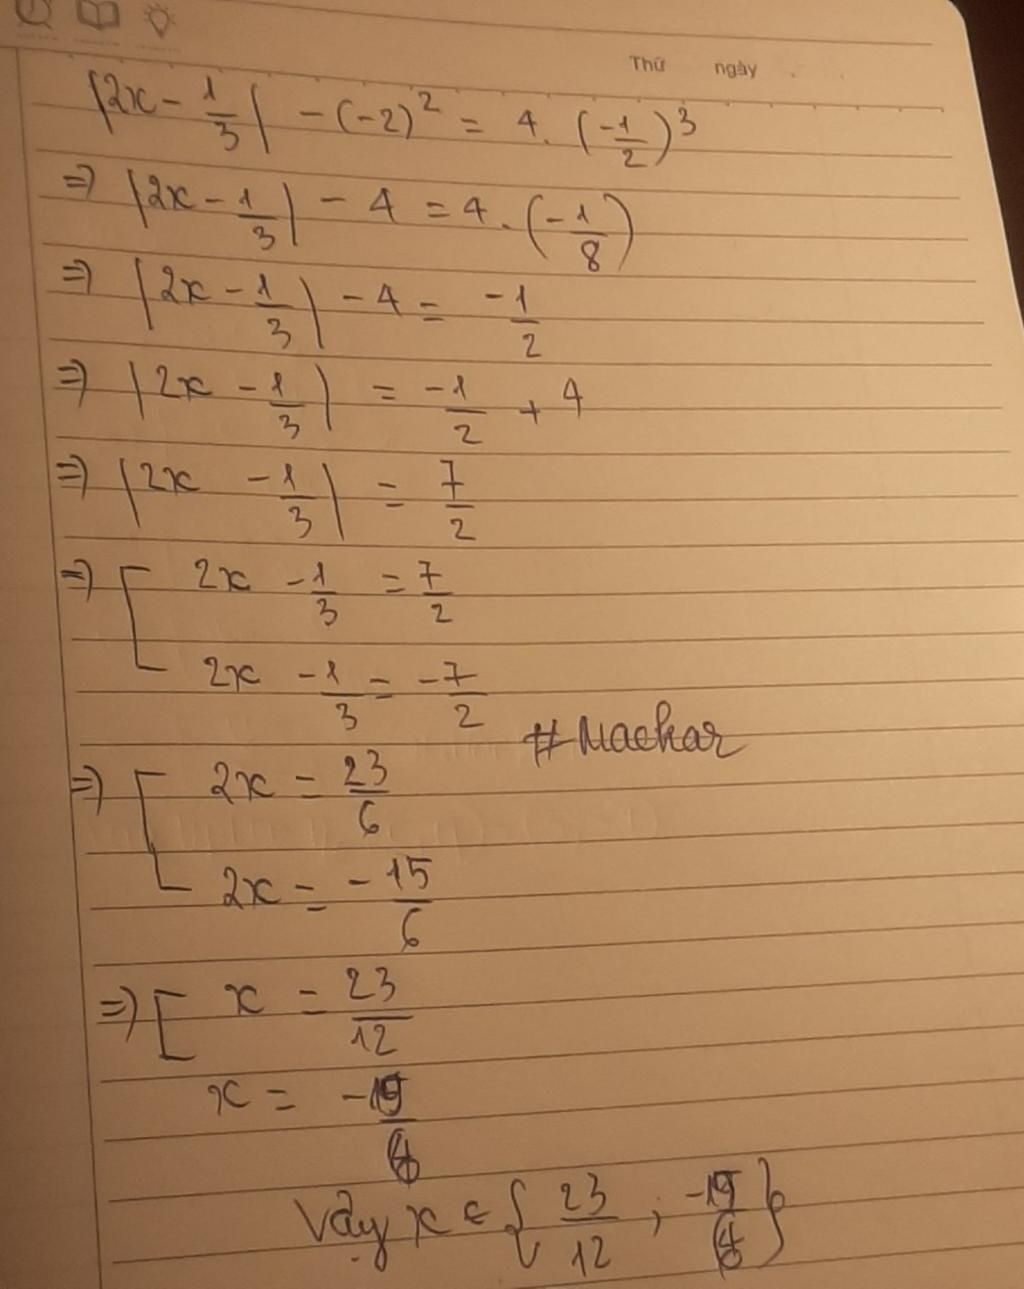 Thứ ngày
|2x - 1/3| - (-2)² = 4. (-1/2)³
=> |2x - 1/3| - 4 = 4. (-1/8)
=> |2x - 1/3| - 4 = -1/2
=> |2x - 1/3| = -1/2 + 4
=> |2x - 1/3| = 7/2
=> [ 2x - 1/3 = 7/2
2x - 1/3 = -7/2
#Maekar
=> [ 2x = 23/6
2x = -15/6
=> [ x = 23/12
x =
Vậy x ∈ { 23/12 ; }